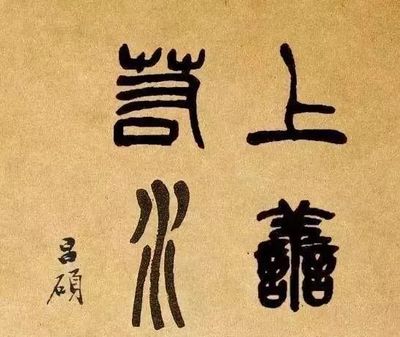 上善
若水
昌硕